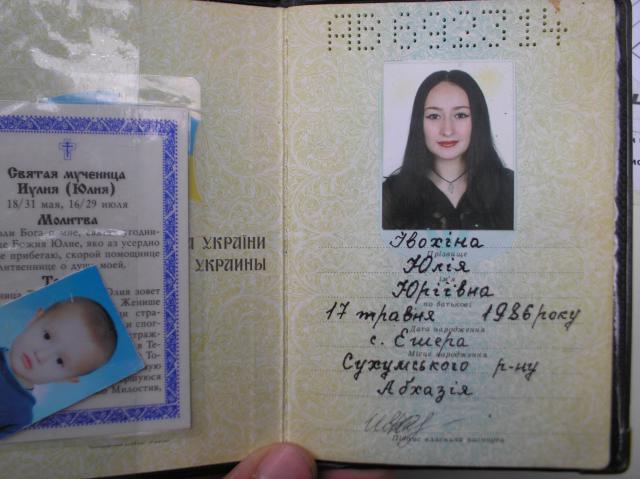 Святая мученица
Иулия (Юлия)
18/31 мая, 16/29 июля
Молитва
Бога о мне, святая
Божия Юлие, яко аз усердно
прибегаю, скорой помощнице
о душе моей.
Юлия зовет
Женише
стра-
То-
Милостив,
УКРАЇНИ
УКРАИНЫ
АВ692314
Івохіна
Прізвище
Юлія
ім'я
Юріївна
по батькові
17 травня 1986 року
Дата народження
с. Ешера
Місце народження
Сухумського р-ну
Абхазія
Підпис власника паспорта